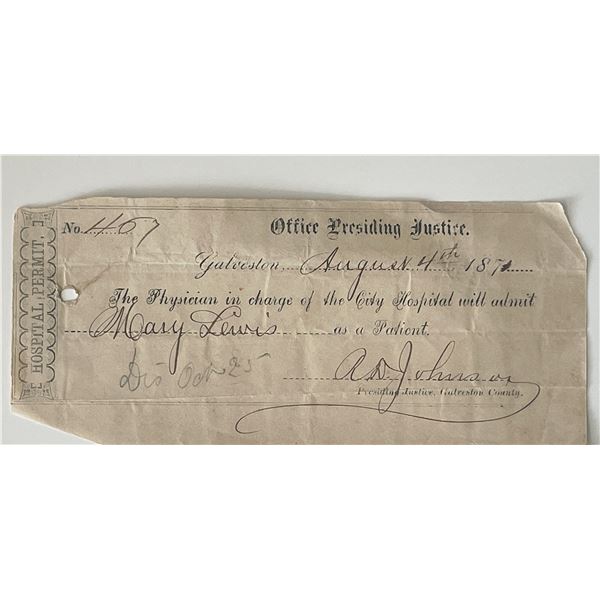 HOSPITAL PERMIT.
No. 467
Office Presiding Justice.
Galveston, August 4th 1871
The Physician in charge of the City Hospital will admit
Mary Lewis as a Patient.
Dis Oct 25
A D Johnson
Presiding Justice, Galveston County.